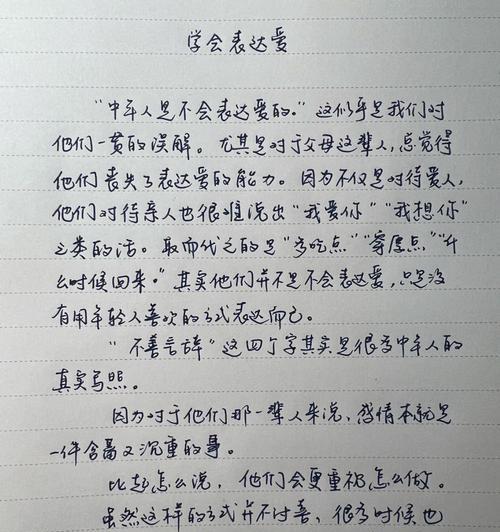 学会表达爱
“中年人是不会表达爱的。”这似乎是我们对
他们一贯的误解。尤其是对于父母这辈人，总觉得
他们丧失了表达爱的能力。因为不仅是对待爱人，
他们对待亲人也很难说出“我爱你”“我想你”
之类的话。取而代之的是“多吃点”“穿厚点”“什
么时候回来。”其实他们并不是不会表达爱，只是没
有用年轻人喜欢的方式表达而已。
“不善言辞”这四个字其实是很多中年人的
真实写照。
因为对于他们那一辈人来说，感情本就是
一件含蓄又沉重的事。
比起怎么说，他们会更重视怎么做。
虽然这样的方式并不讨喜，很多时候也